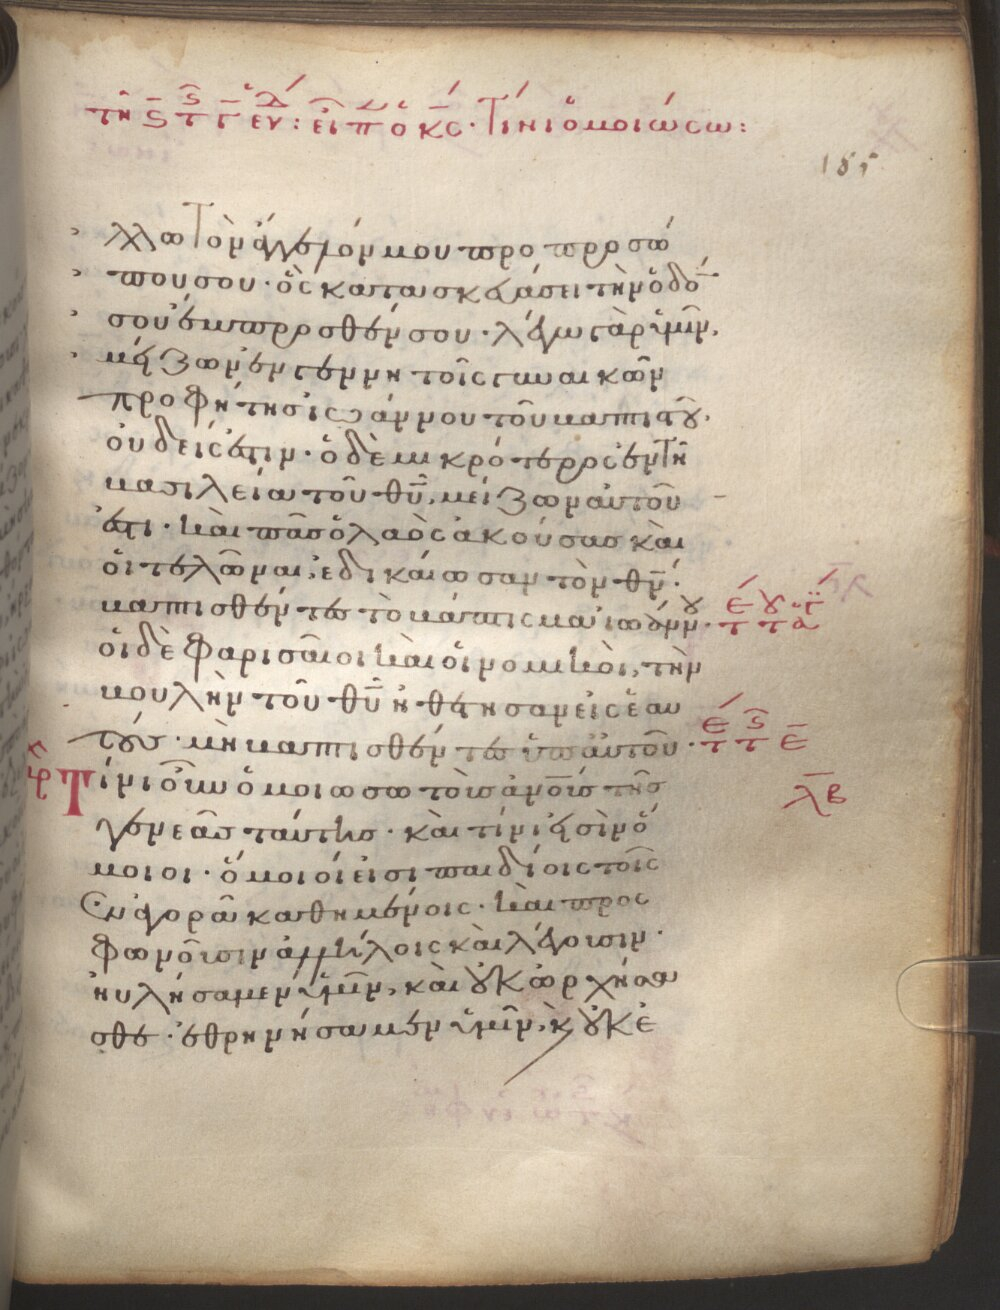 τῆ ϛ τ γ εν : εἶπ ὁ κς · Τίνι ὁμοιώσω :
155
λλω Τὸν ἄγγελόν μου προ προσώ
που σου · ὃς κατασκευάσει τὴν ὁδό
σου ἔμπροσθέν σου · λέγω γὰρ ὑμῖν,
μείζων ἐν γεννητοῖς γυναικῶν
προφήτης ἰωάννου τοῦ βαπτιστοῦ,
οὐδείς ἐστιν · ὁ δὲ μικρότερος ἐν τῆ
βασιλεία τοῦ θυ, μείζων αὐτοῦ
ἐστι · καὶ πᾶς ὁ λαὸς ἀκούσας καὶ
οἱ τελῶναι, ἐδικαίωσαν τὸν θν ·
βαπτισθέντες τὸ βάπτισμα ἰωάννου ·
οἱ δὲ φαρισαῖοι καὶ οἱ νομικοὶ, τὴν
βουλὴν τοῦ θυ ἠθέτησαν εἰς ἑαυ
τούς · μὴ βαπτισθέντες ὑπ αὐτοῦ ·
Τίνι οὖν ὁμοιώσω τοὺς ἀνους τῆς
λβ
γενεᾶς ταύτης · καὶ τίνι εἰσὶν ὅ
μοιοι · ὅμοιοί εἰσι παιδίοις τοῖς
ἐν ἀγορᾶ καθημένοις · καὶ προσ
φωνοῦσιν ἀλλήλοις καὶ λέγουσιν ·
ηὐλήσαμεν ὑμῖν, καὶ οὐκ ὠρχήσα
σθε · ἐθρηνήσαμεν ὑμῖν, κ οὐκ ἐ